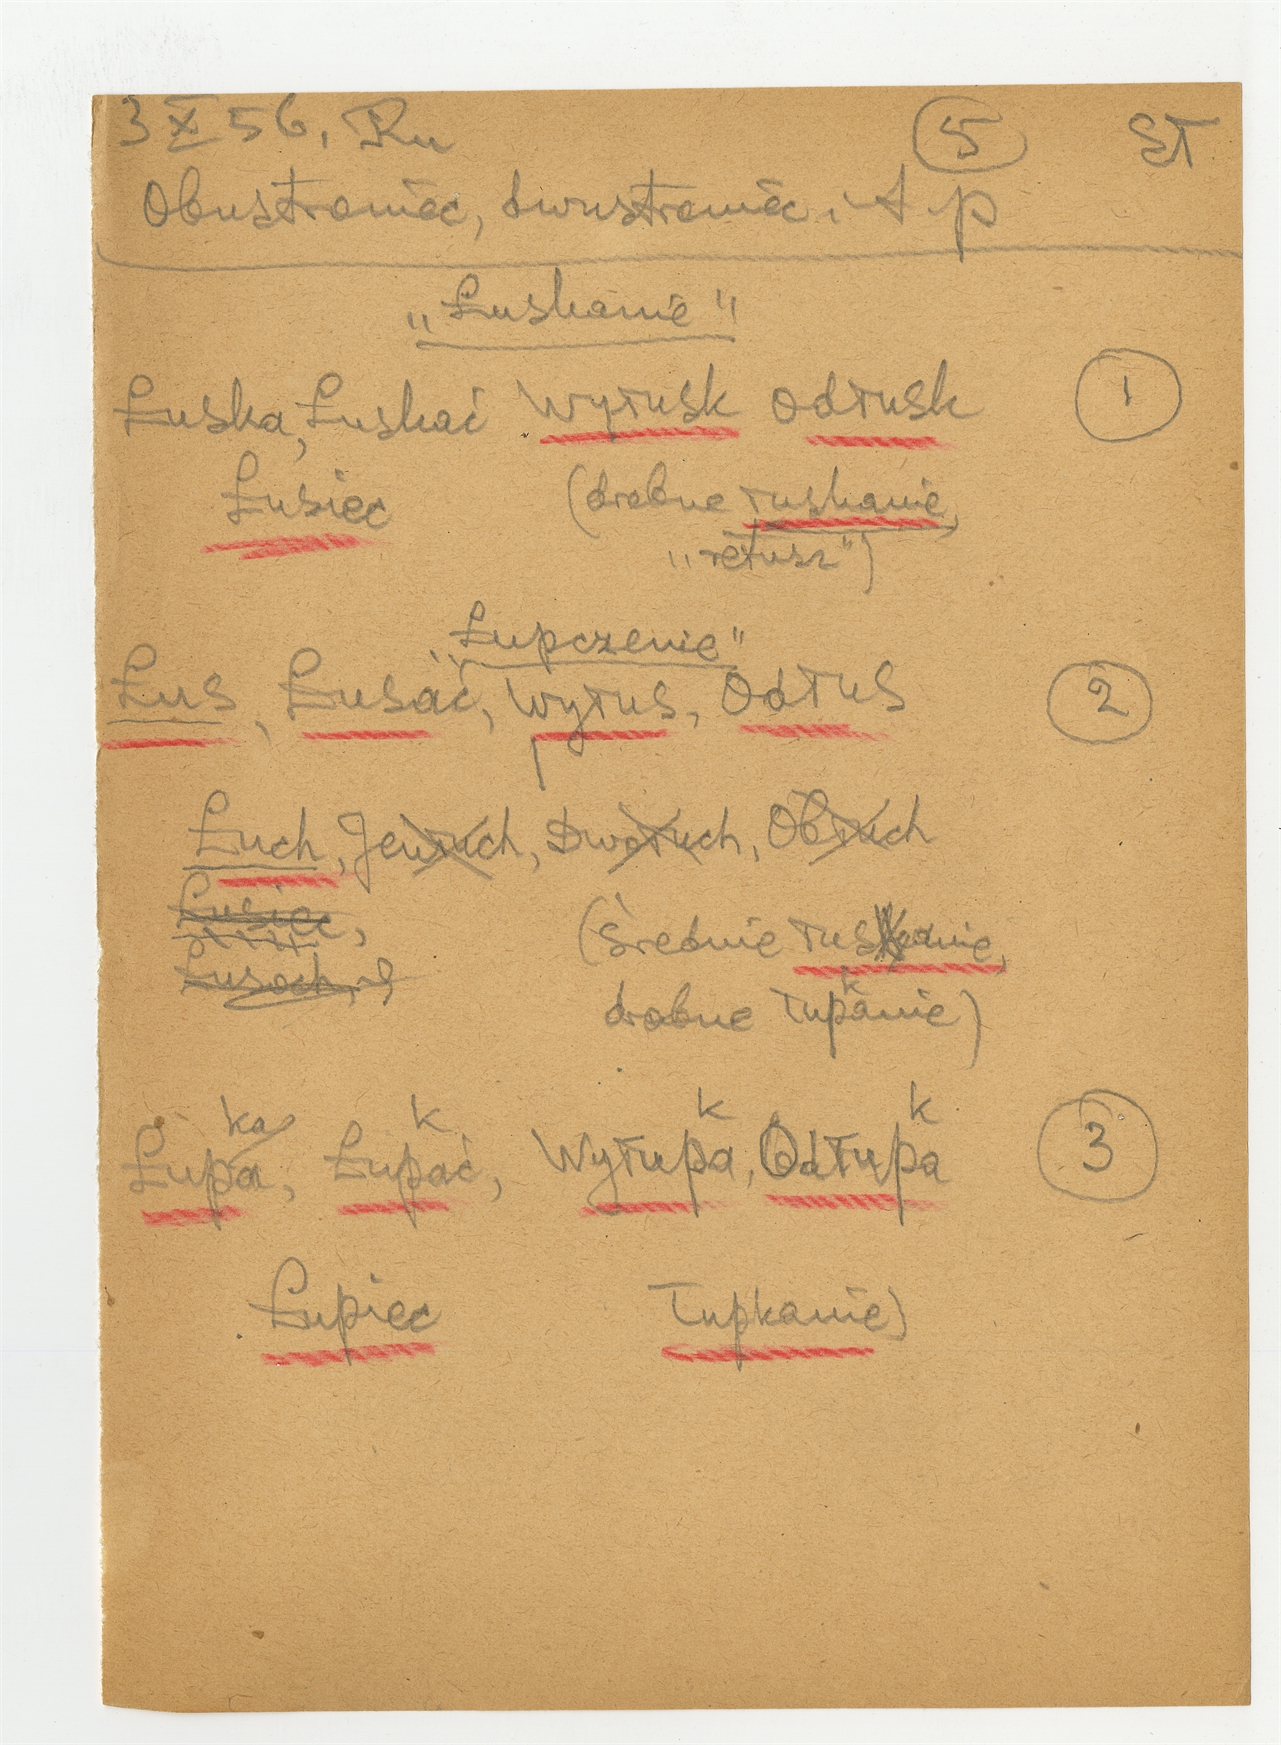 3 X 56, Ru 5 ST
Obustroniec, dwustroniec i t. p
„Łuskanie"
Łuska, Łuskać Wyłusk Odłusk 1
Łusiec (drobne łuskanie,
„retusz")
„Łupczenie"
Łus, Łusać, Wyłus, Odłus 2
Łuch, Jenłuch, Dwołuch, Obłuch
Łusiec,
Łusoch,
(średnie łuskanie,
drobne łupkanie)
Łupka, Łupkać, Wyłupka, Odłupka 3
Łupiec łupkanie)